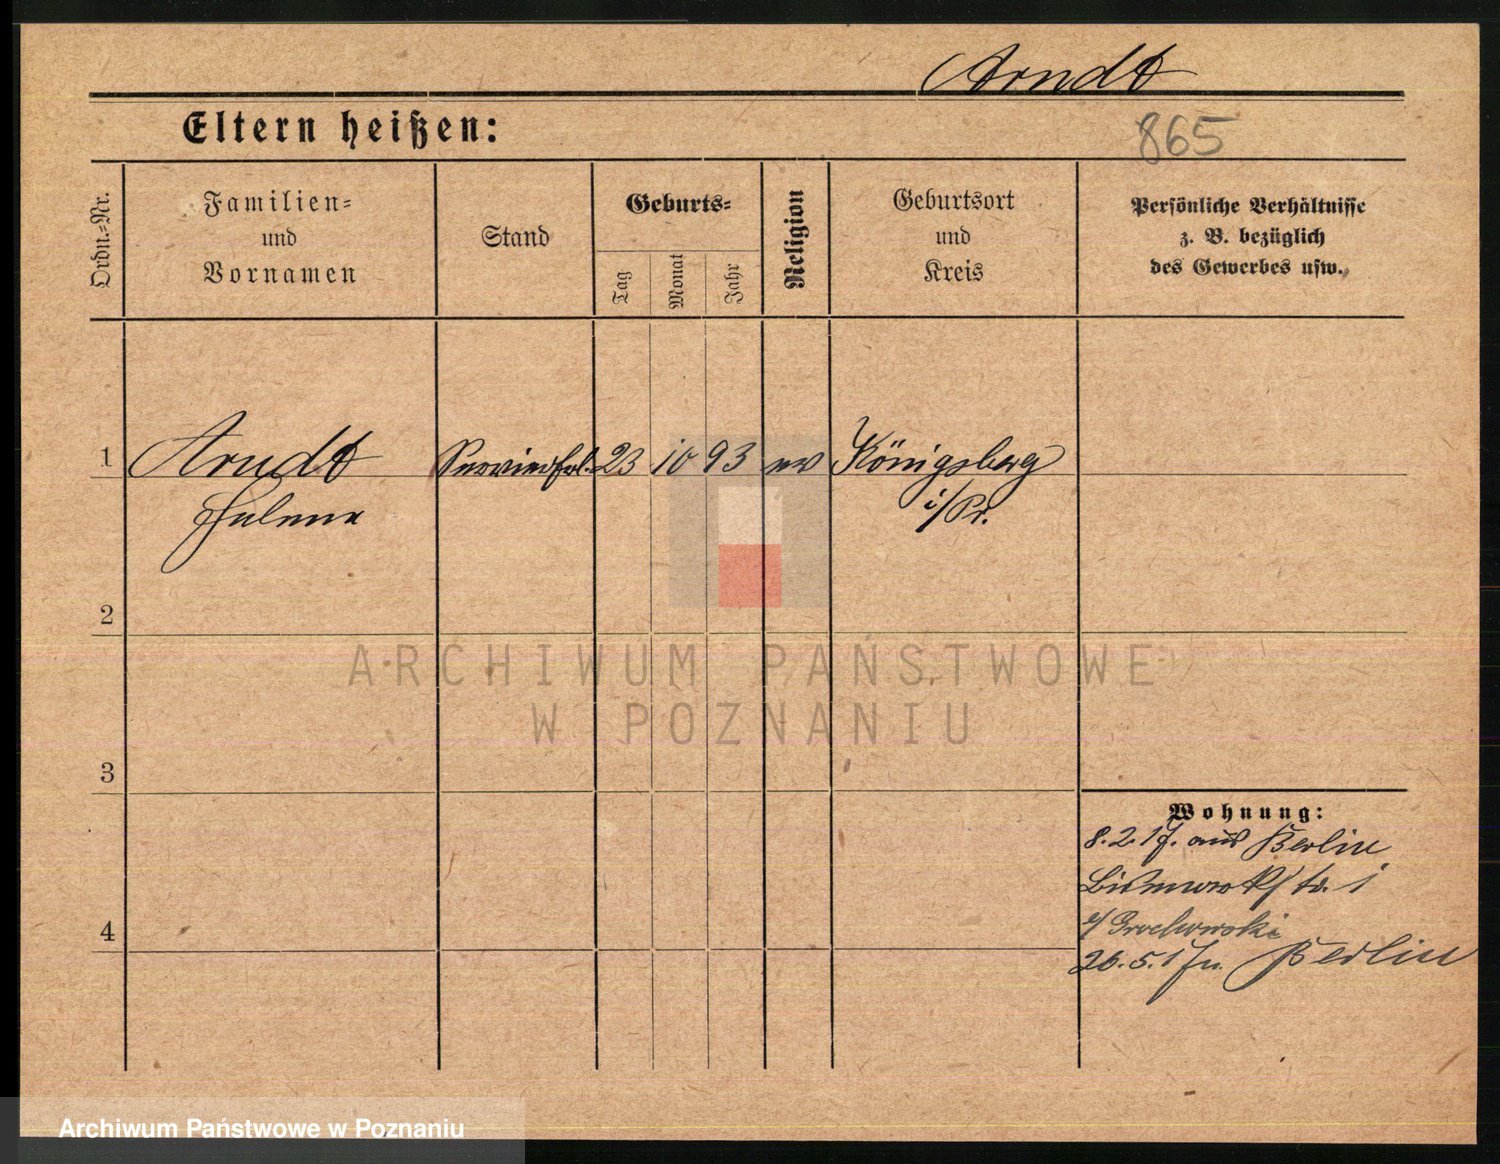 Arndt
865
Eltern heißen:
Ordn.-Nr.
Familien-
und
Vornamen
Stand
Geburts-
Tag
Monat
Jahr
Religion
Geburtsort
und
Kreis
Persönliche Verhältnisse
z. B. bezüglich
des Gewerbes usw.
1 Arndt Servierfrl. 23 10 93 ev Königsberg
Helene i/Pr.
2
ARCHIWUM PAŃSTWOWE
W POZNANIU
3
Wohnung:
8.2.17. aus Berlin
Bismarckstr. 1
b/ Grochowski
4
26.5.17 n. Berlin
Archiwum Państwowe w Poznaniu